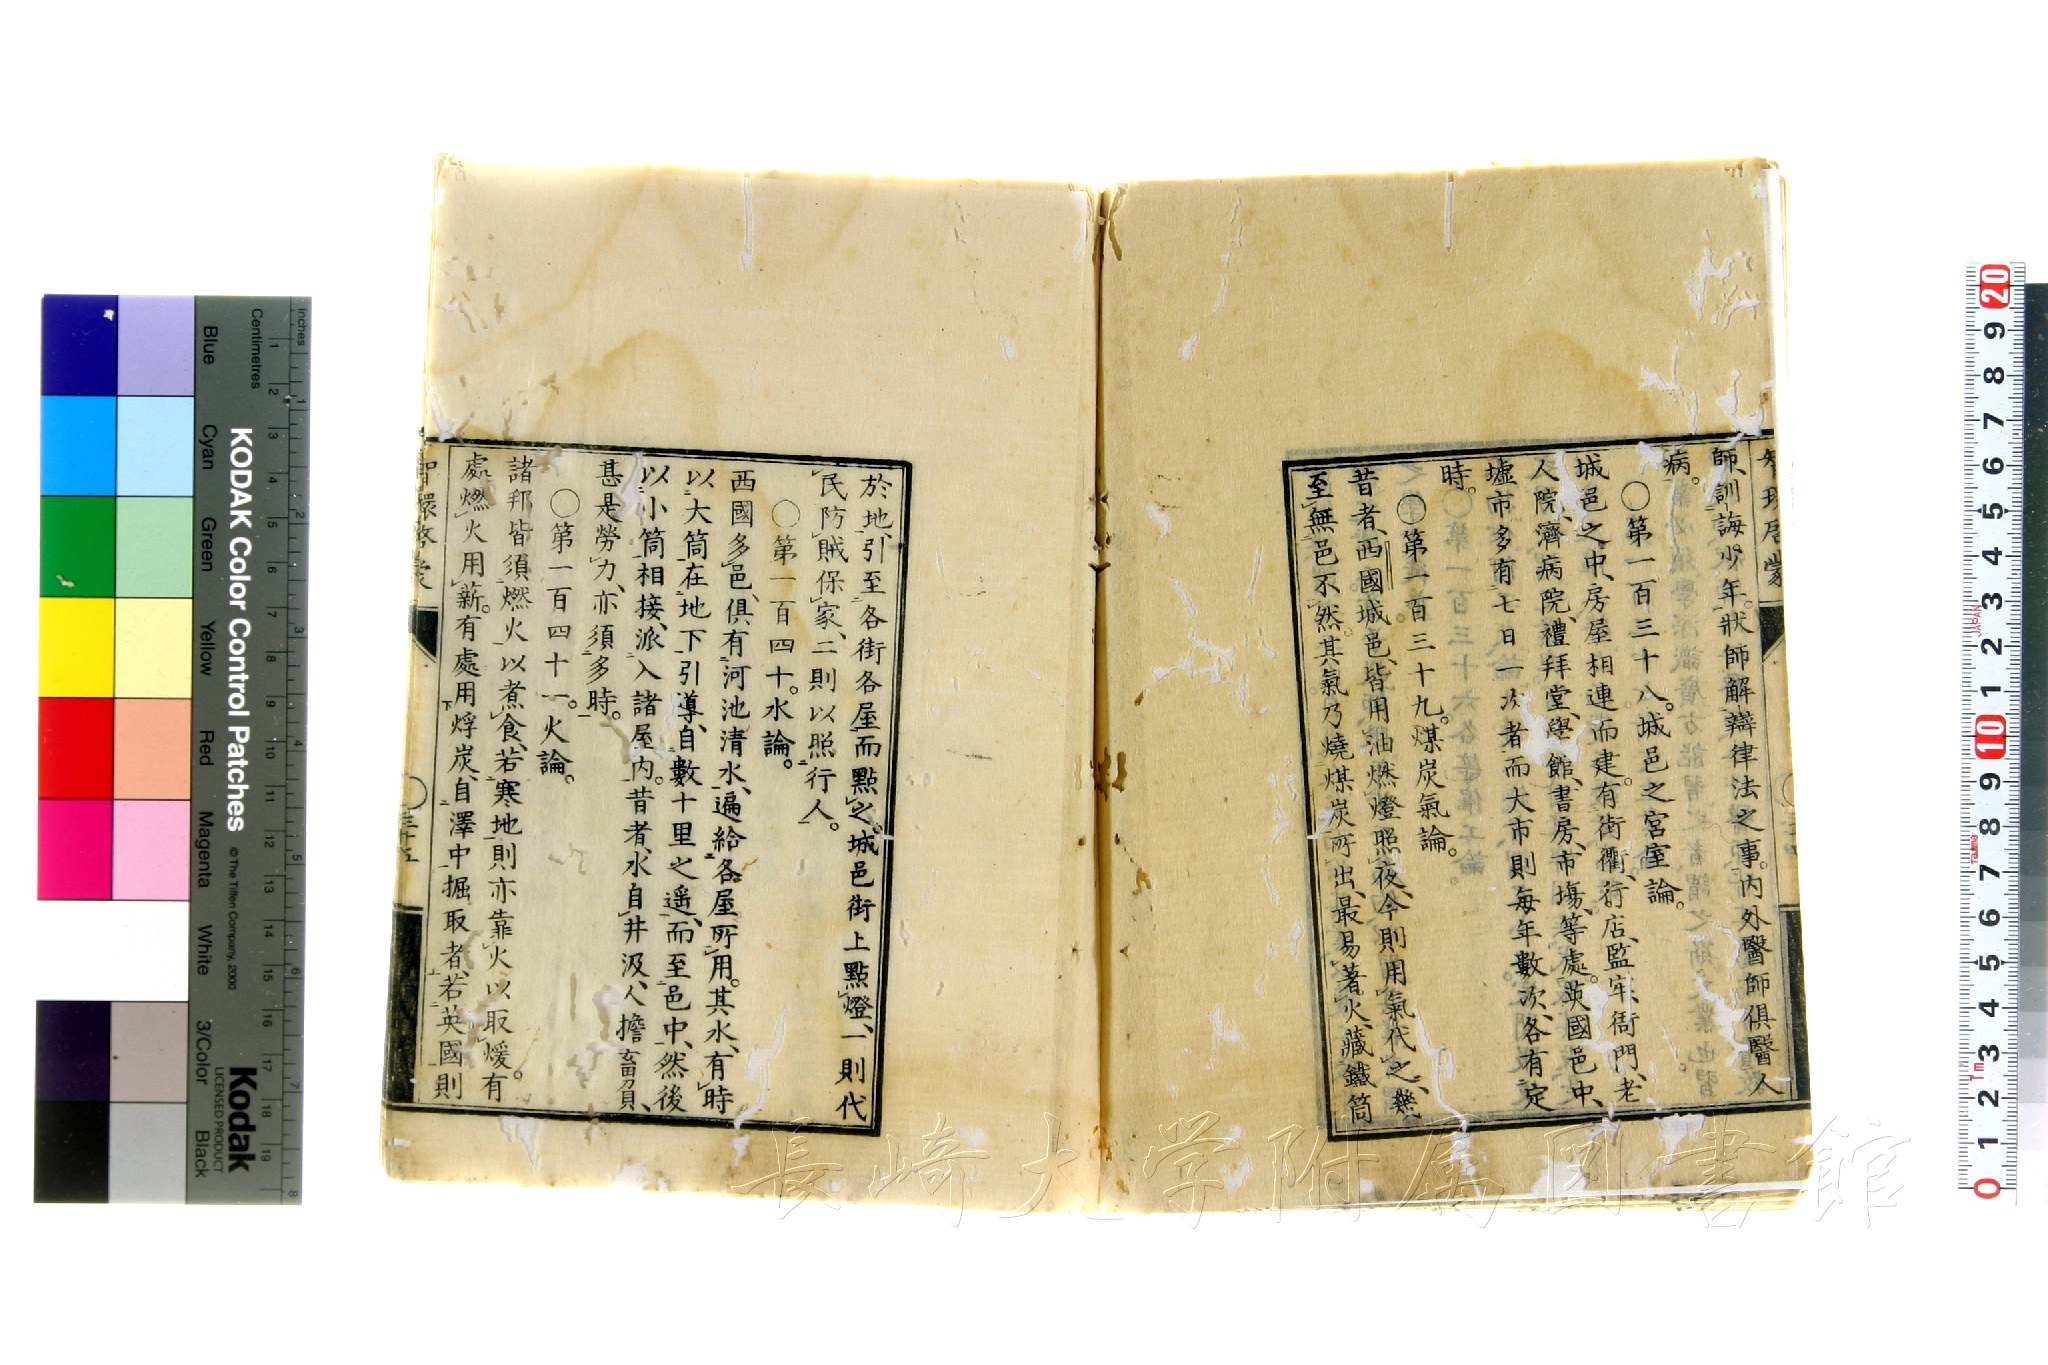 師、訓誨少年。狀師解辯律法之事。內外醫師俱醫人
病。
○第一百三十八。城邑之宮室論。
城邑之中、房屋相連而建。有街衢、行店、監牢、衙門、老
人院、濟病院、禮拜堂、學館、書房、市塲、等處。英國邑中、
墟市多有七日一次者、而大市則每年數次、各有定
時。
○第一百三十九。煤炭氣論。
昔者、西國城邑、皆用油燃燈照夜、今則用氣代之、幾
至無邑不然。其氣乃燒煤炭所出、最易著火、藏鐵筒
於地、引至各街各屋而點之。城邑街上點燈、一則代
民防賊保家、二則以照行人。
○第一百四十。水論。
西國多邑、俱有河池清水、遍給各屋所用。其水、有時
以大筒在地下引導、自數十里之遙、而至邑中、然後
以小筒相接、派入諸屋內。昔者、水自井汲、人擔畜負、
甚是勞力、亦須多時。
○第一百四十一。火論。
諸邦皆須燃火以煮食、若寒地則亦靠火以取煖。有
處燃火用薪。有處用烰炭、自澤中掘取者、若英國則
智環啓蒙
○三十五
KODAK Color Control Patches
© The Tiffen Company, 2000
Kodak
LICENSED PRODUCT
Inches
Centimetres
Blue
Cyan
Green
Yellow
Red
Magenta
White
3/Color
Black
長崎大学附属図書館